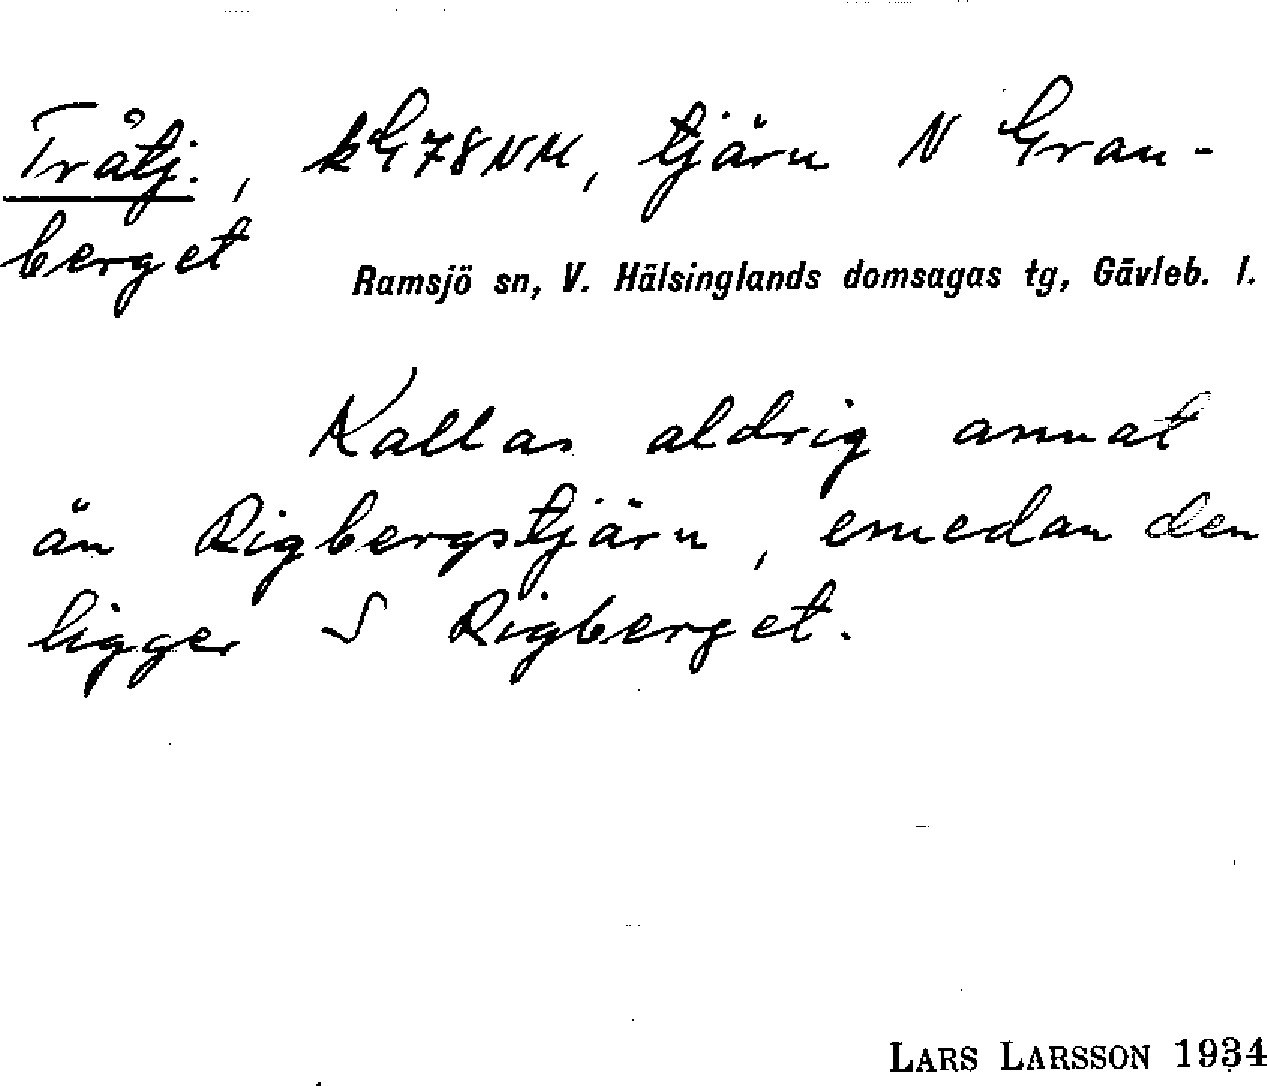 Tråtj., kG78NM, tjärn N Gran-
berget
Ramsjö sn, V. Hälsinglands domsagas tg, Gävleb. l.
Kallas aldrig annat
än Rigbergstjärn, emedan den
ligger S Rigberget.
LARS LARSSON 1934